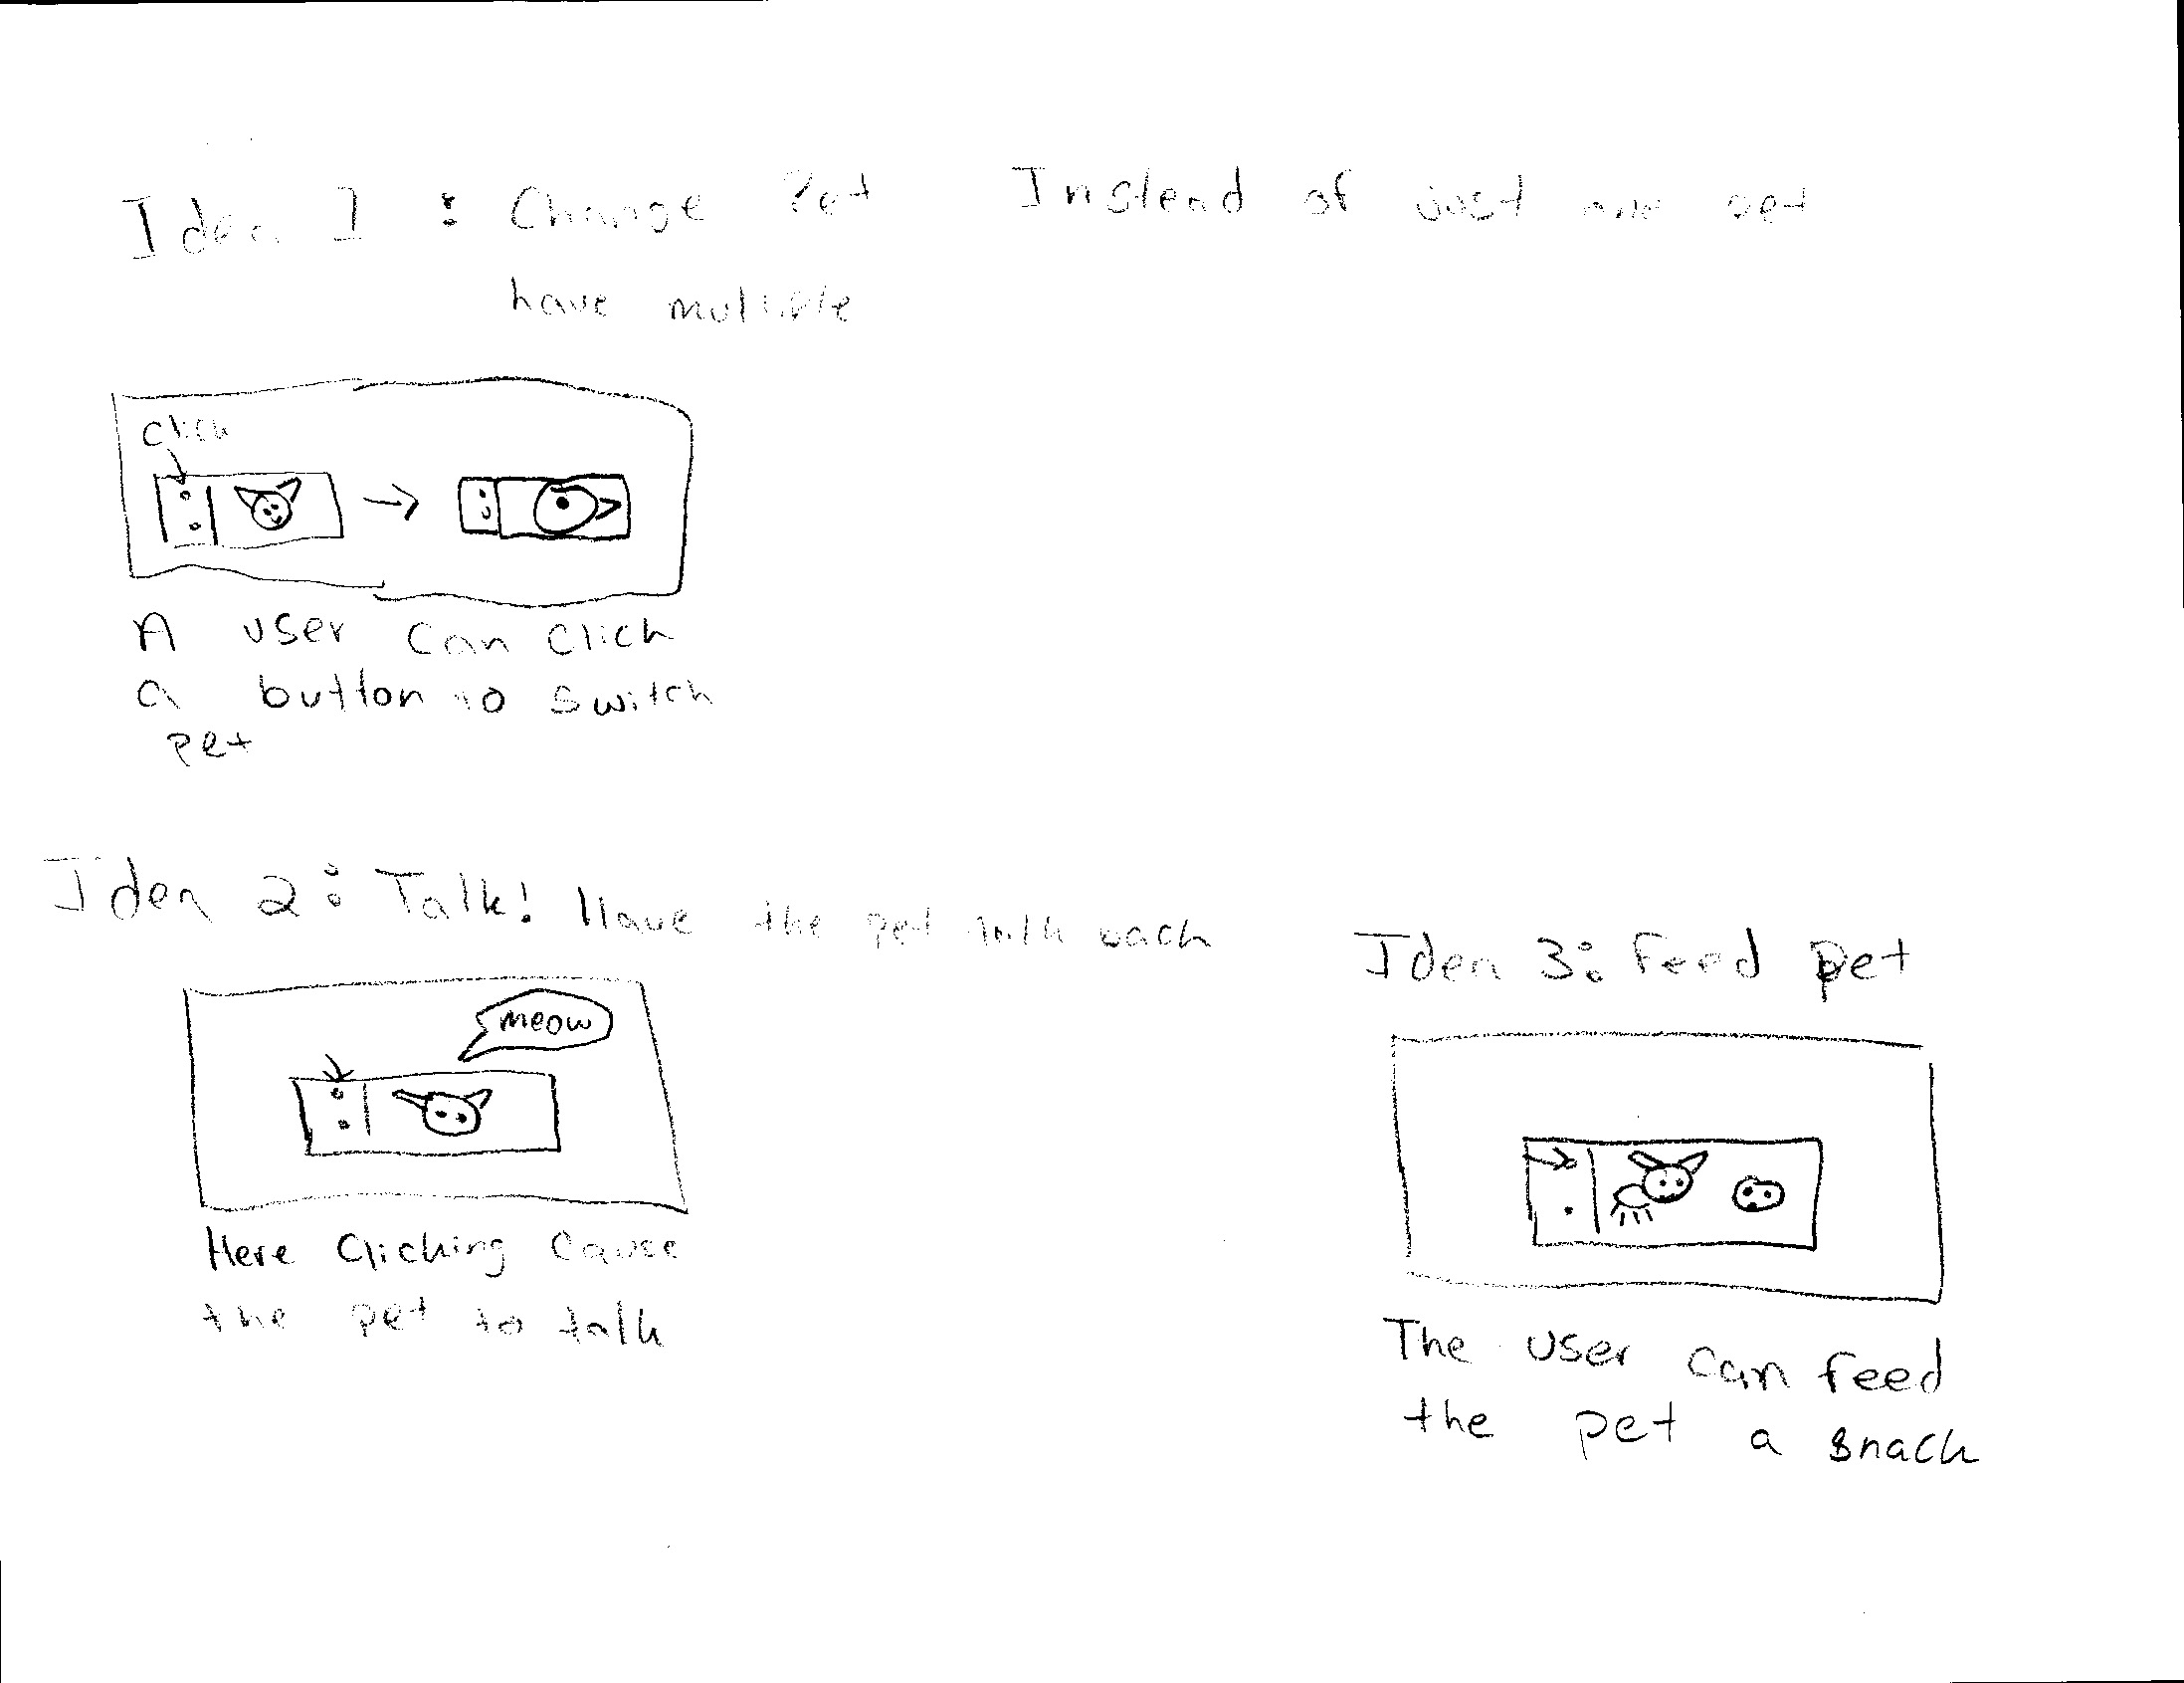 Idea 1 : Change Pet Instead of just one pet
have multiple
click
A user can click
a button to switch
pet
Idea 2: Talk! Have the pet talk back
meow
Here Clicking Cause
the pet to talk
Idea 3: Feed pet
The user can feed
the pet a snack